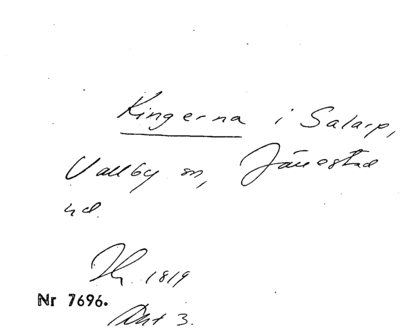 Ringerna i Salarp,
Vallby sn, Järrestad
hd.
Kr. 1819
Nr 7696.
Akt 3.